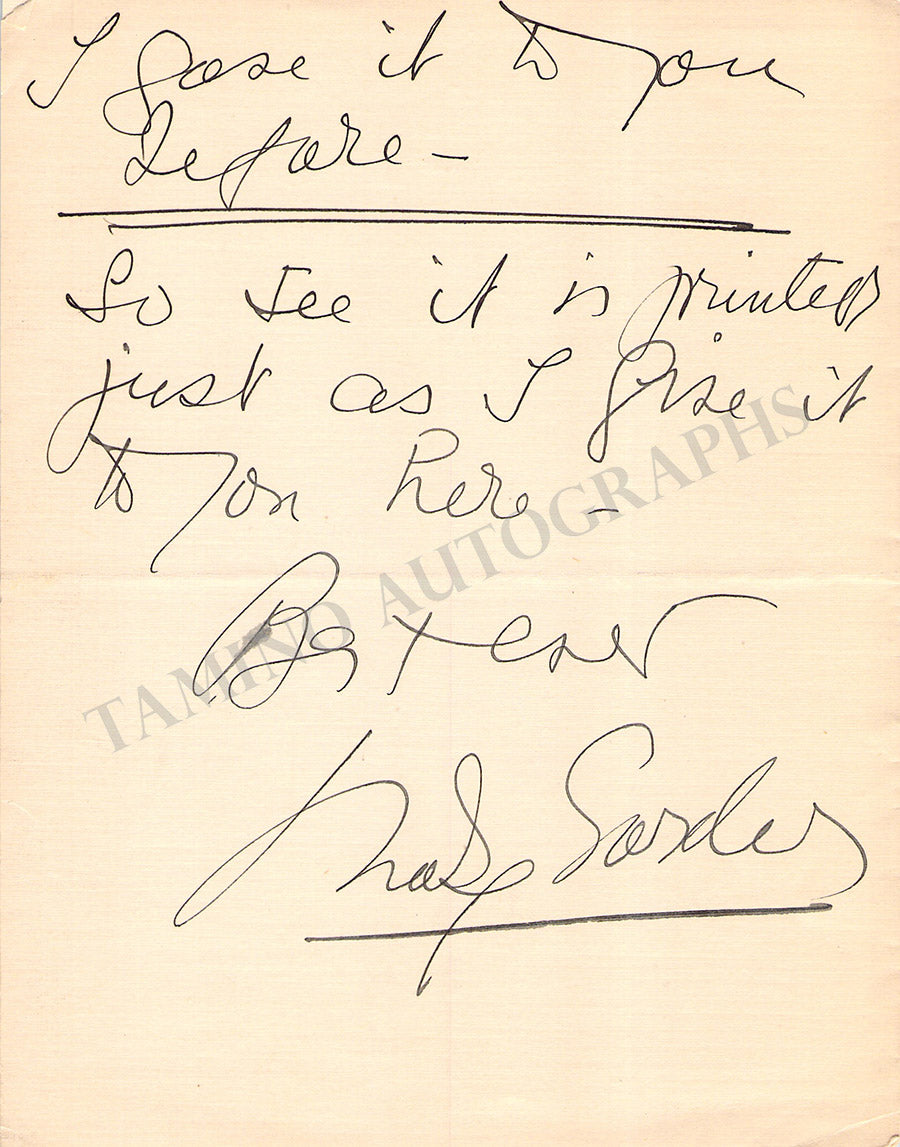 I gave it to you
before —
So see it is printed
just as I give it
to you here —
Best ever
Mary Garden
TAMINO AUTOGRAPHS